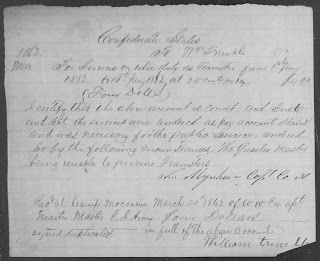 Confederate States
1862 To Wm Trimble Dr
Mar For Services on extra duty as Teamster from 1st Jany
1862 to 16th Jany 1862, at 25 cents per day $4.00
(Four Dolls)
I certify that the above account is correct and Just
and that the services were rendered as per account stated
and was necessary for the public service, rendered
so by the following circumstances. The Quarter Master
being unable to procure Teamsters.
Wm Capt Co A
Recd at Camp Moccasin March 20 1862 of W W Cox capt
Quarter Master C. S. Army Four Dollars
signed duplicates in full of the above account
William Trimble